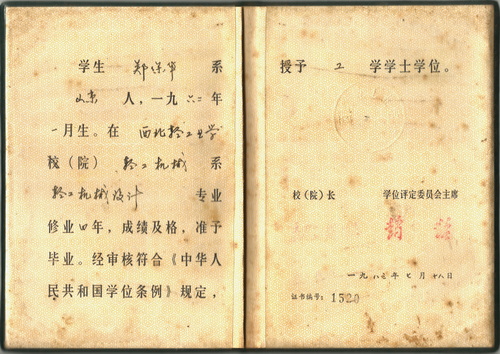 学生 郑 系
山东 人，一九六二年
一月生。在 西北轻工业学
校（院） 轻工机械 系
轻工机械设计 专业
修业四年，成绩及格，准予
毕业。经审核符合《中华人
民共和国学位条例》规定，
授予 工 学学士学位。
校（院）长 学位评定委员会主席
一九八 年七月十八日
证书编号：1520